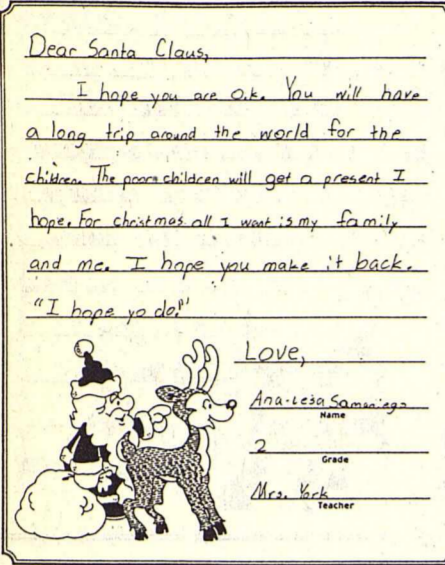 Dear Santa Claus,
I hope you are O.k. You will have
a long trip around the world for the
children. The poors children will get a present I
hope. For christmas all I want is my family
and me. I hope you make it back.
"I hope yo do!"
Love,
Ana-Lesa Samaniego
Name
2
Grade
Mrs. York
Teacher